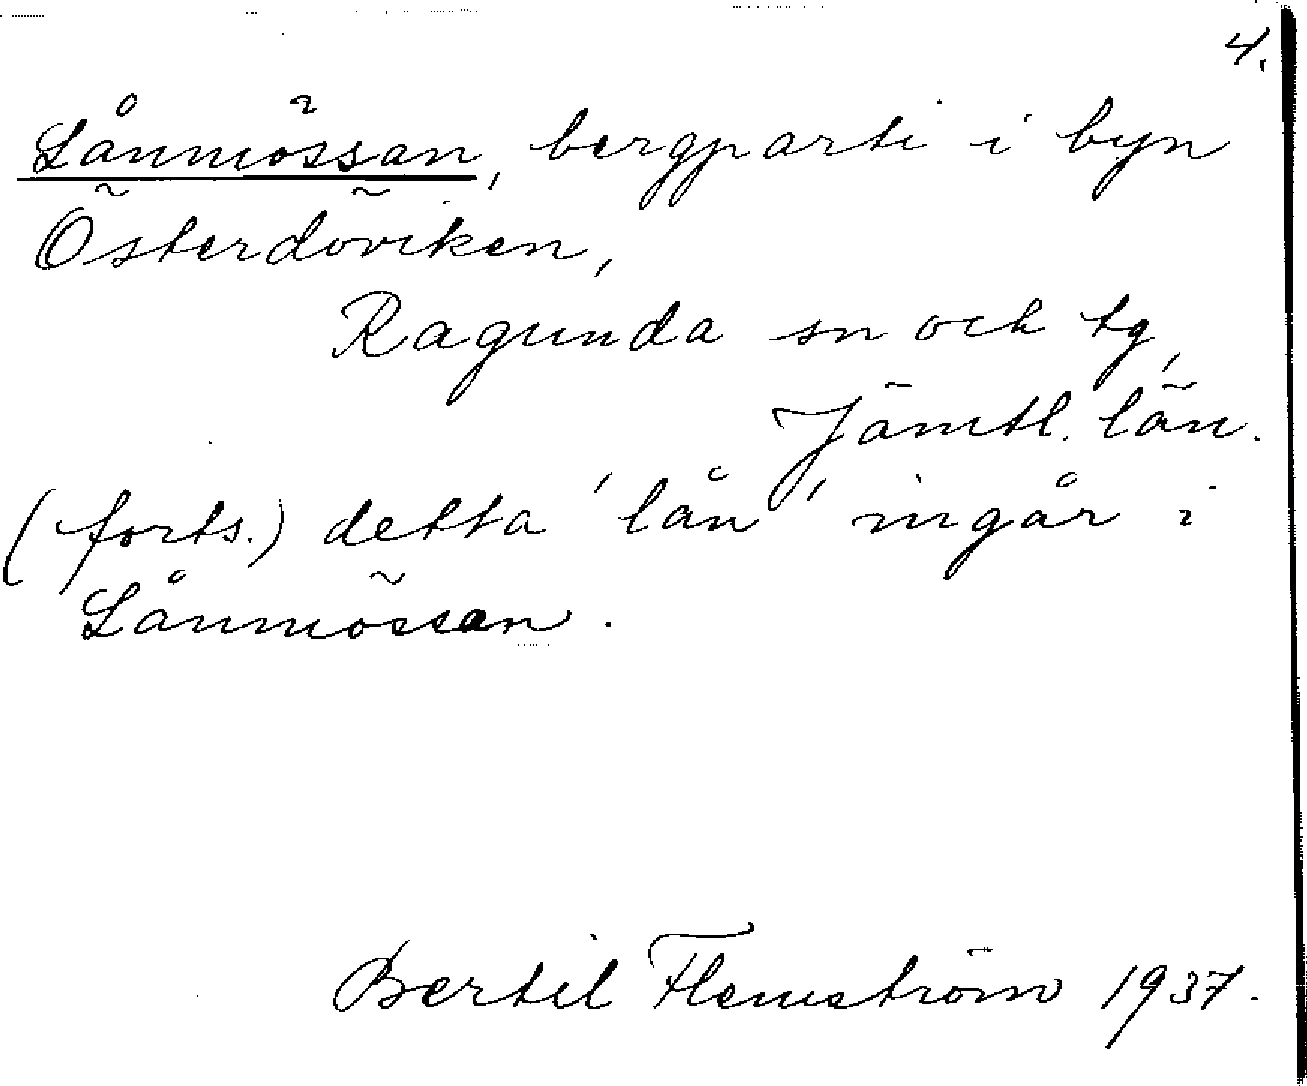 4.
Lånmössan, bergparti i byn
Österdöviken,
Ragunda sn och tg,
Jämtl. län.
(forts.) detta 'lån' ingår i
Lånmössan.
Bertil Flemström 1937.